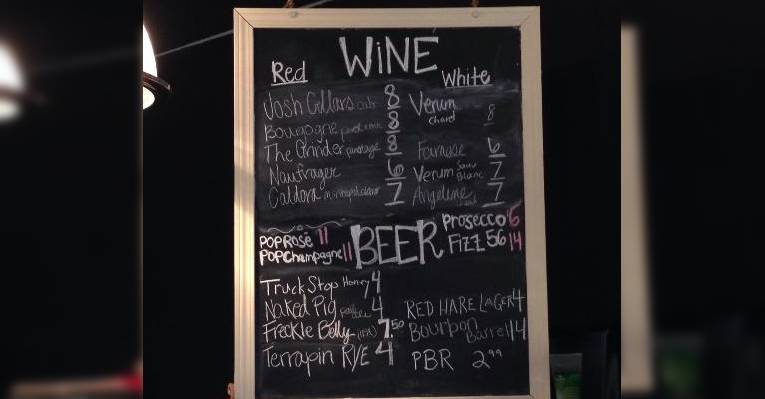 WiNE
Red
White
Josh Cellars cab 8
Bourgogne pinot noir 8
The Grinder pinotage 8
Naufrager 6
Caldora 7
Verum Chard 8
Fournase 6
Verum Sauv Blanc 7
Angeline 7
POP ROSÉ 11
POP Champagne 11
BEER
Prosecco 6
FiZZ 56 14
Truck Stop Honey 4
Naked Pig pale ale 4
Freckle Belly (IPA) 7.50
Terrapin RYE 4
RED HARE LAGER 4
Bourbon Barrel 14
PBR 2.99